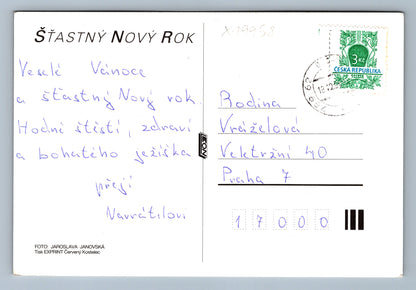 ŠŤASTNÝ NOVÝ ROK
Veselé Vánoce
a šťastný Nový rok.
Hodně štěstí, zdraví
a bohatého ježíška
přejí
Navrátilovi
FOTO: JAROSLAVA JANOVSKÁ
Tisk EXPRINT Červený Kostelec
3 Kč
ČESKÁ REPUBLIKA
Rodina
Vráželova
Veletržní 40
Praha 7
17000